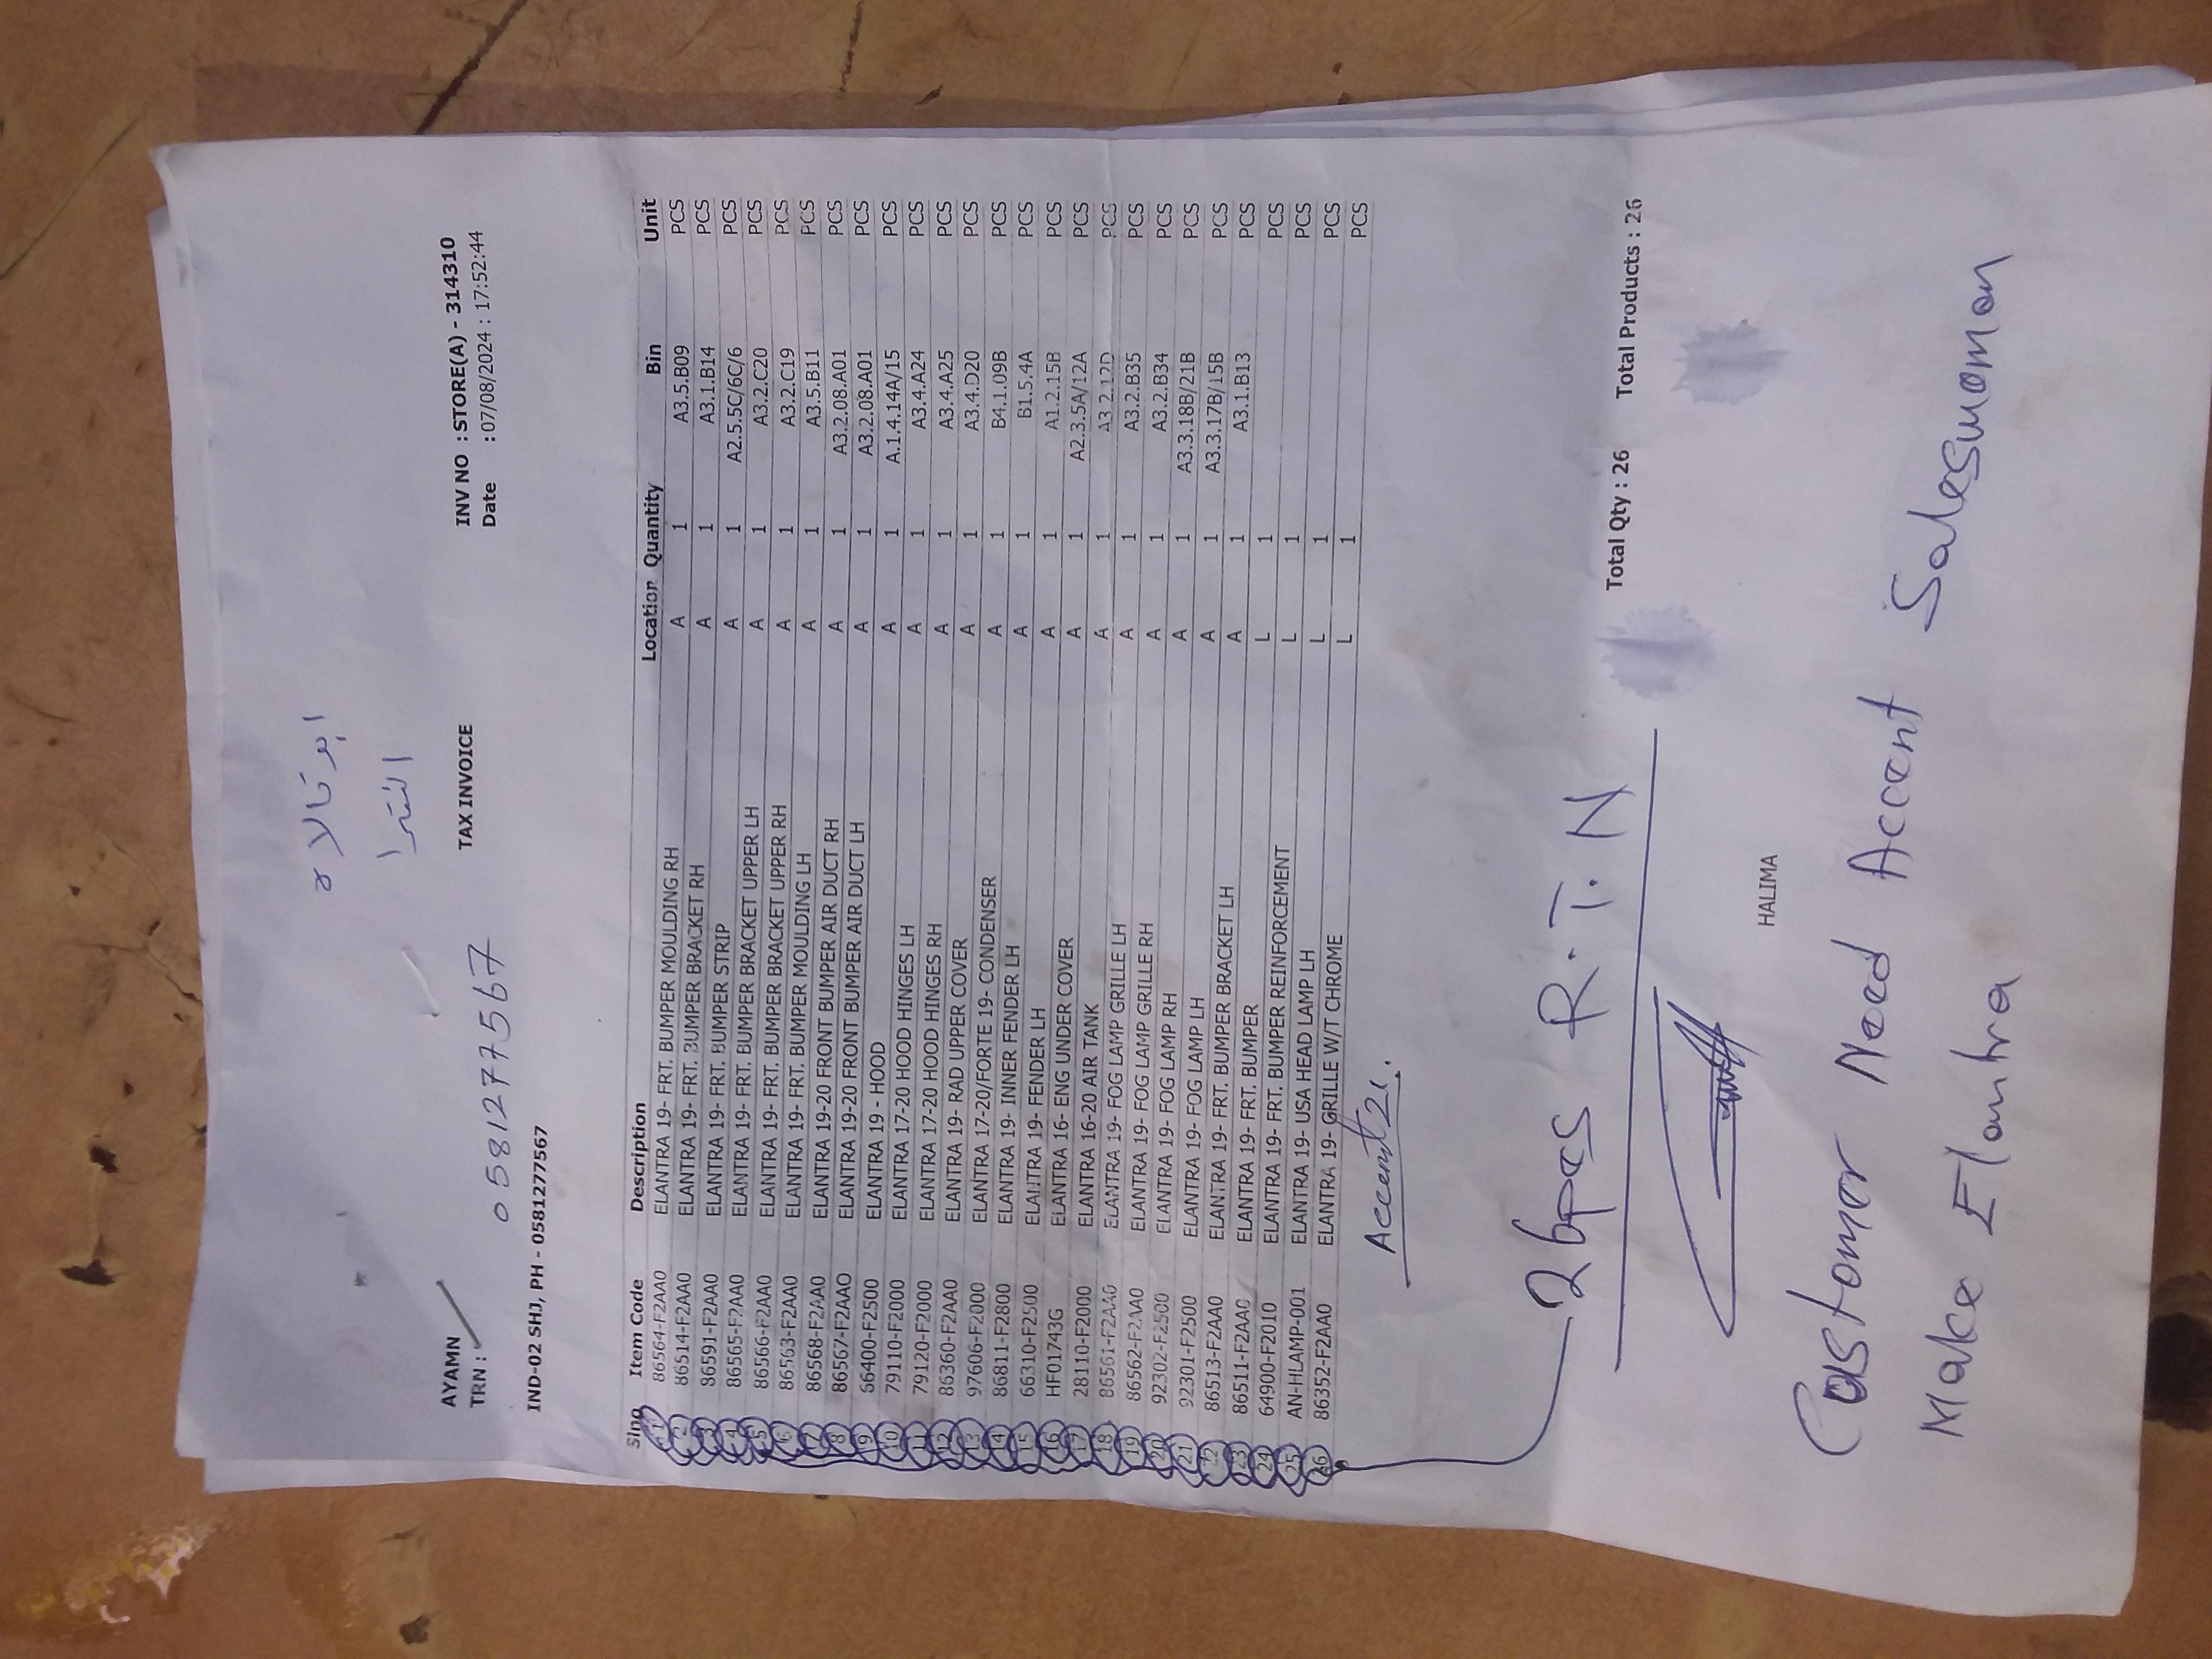 ابو تالا ة
النترا
AYAMN
TRN :
TAX INVOICE
INV NO : STORE(A) - 314310
Date : 07/08/2024 : 17:52:44
0581277567
IND-02 SHJ, PH - 0581277567
Slno Item Code Description Location Quantity Bin Unit
1 86564-F2AA0 ELANTRA 19- FRT. BUMPER MOULDING RH A 1 A3.5.B09 PCS
2 86514-F2AA0 ELANTRA 19- FRT. BUMPER BRACKET RH A 1 A3.1.B14 PCS
3 86591-F2AA0 ELANTRA 19- FRT. BUMPER STRIP A 1 A2.5.5C/6C/6 PCS
4 86565-F2AA0 ELANTRA 19- FRT. BUMPER BRACKET UPPER LH A 1 A3.2.C20 PCS
5 86566-F2AA0 ELANTRA 19- FRT. BUMPER BRACKET UPPER RH A 1 A3.2.C19 PCS
6 86563-F2AA0 ELANTRA 19- FRT. BUMPER MOULDING LH A 1 A3.5.B11 PCS
7 86568-F2AA0 ELANTRA 19-20 FRONT BUMPER AIR DUCT RH A 1 A3.2.08.A01 PCS
8 86567-F2AAO ELANTRA 19-20 FRONT BUMPER AIR DUCT LH A 1 A3.2.08.A01 PCS
9 66400-F2500 ELANTRA 19 - HOOD A 1 A.1.4.14A/15 PCS
10 79110-F2000 ELANTRA 17-20 HOOD HINGES LH A 1 A3.4.A24 PCS
11 79120-F2000 ELANTRA 17-20 HOOD HINGES RH A 1 A3.4.A25 PCS
12 86360-F2AA0 ELANTRA 19- RAD UPPER COVER A 1 A3.4.D20 PCS
13 97606-F2000 ELANTRA 17-20/FORTE 19- CONDENSER A 1 B4.1.09B PCS
14 86811-F2800 ELANTRA 19- INNER FENDER LH A 1 B1.5.4A PCS
15 66310-F2500 ELANTRA 19- FENDER LH A 1 A1.2.15B PCS
16 HF01743G ELANTRA 16- ENG UNDER COVER A 1 A2.3.5A/12A PCS
17 28110-F2000 ELANTRA 16-20 AIR TANK A 1 A3.2.17D PCS
18 86561-F2AA0 ELANTRA 19- FOG LAMP GRILLE LH A 1 A3.2.B35 PCS
19 86562-F2AA0 ELANTRA 19- FOG LAMP GRILLE RH A 1 A3.2.B34 PCS
20 92302-F2500 ELANTRA 19- FOG LAMP RH A 1 A3.3.18B/21B PCS
21 92301-F2500 ELANTRA 19- FOG LAMP LH A 1 A3.3.17B/15B PCS
22 86513-F2AA0 ELANTRA 19- FRT. BUMPER BRACKET LH A 1 A3.1.B13 PCS
23 86511-F2AA0 ELANTRA 19- FRT. BUMPER L 1 PCS
24 64900-F2010 ELANTRA 19- FRT. BUMPER REINFORCEMENT L 1 PCS
25 AN-HLAMP-001 ELANTRA 19- USA HEAD LAMP LH L 1 PCS
26 86352-F2AA0 ELANTRA 19- GRILLE W/T CHROME L 1 PCS
Accent 21.
26pas R.T.N
Total Qty : 26 Total Products : 26
HALIMA
Customer Need Accent Salesmman
Make Elantra